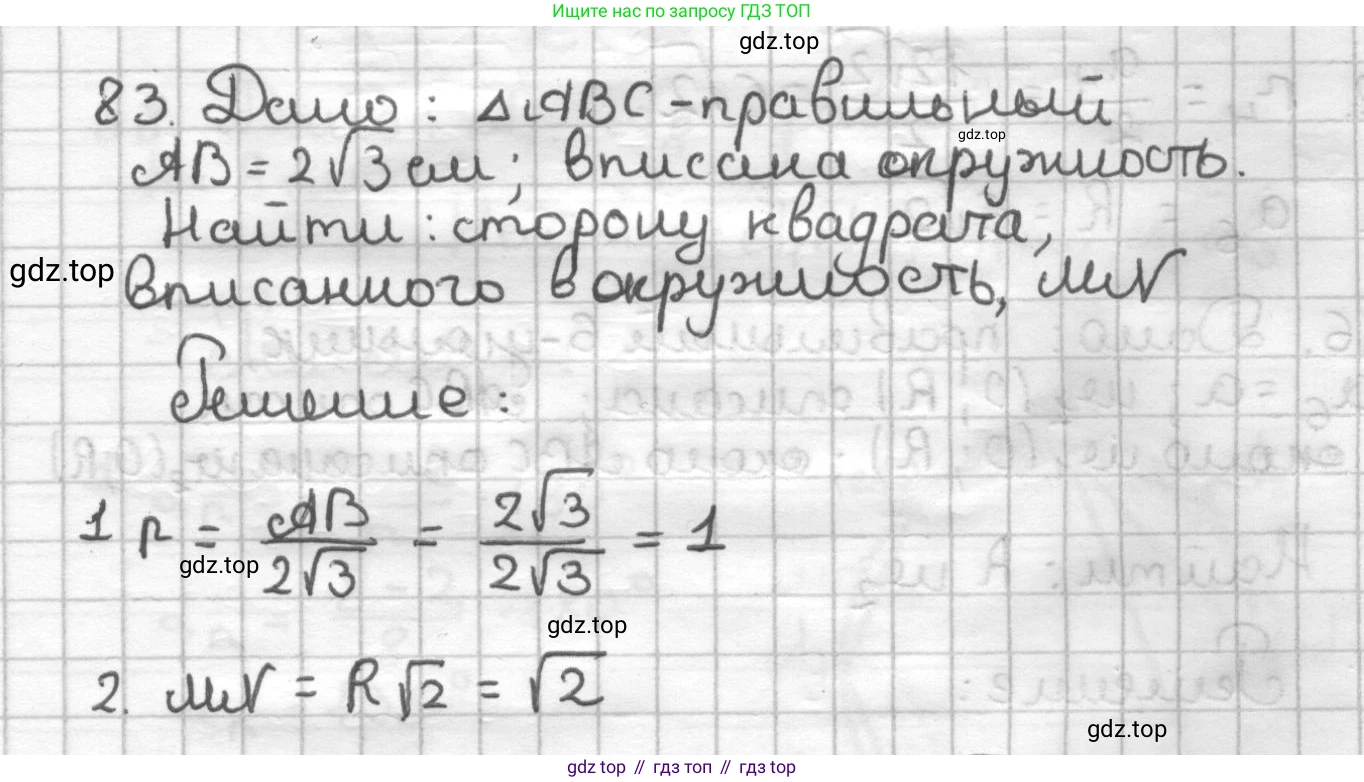 Ищите нас по запросу ГДЗ ТОП
gdz.top
83. Дано: △ABC - правильный
gdz.top
AB = 2√3 см; вписана окружность.
Найти: сторону квадрата,
gdz.top
вписанного в окружность, MN
Решение:
1 r = AB/2√3 = 2√3/2√3 = 1
gdz.top
gdz.top
2. MN = R√2 = √2
gdz.top
gdz top // гдз топ // гдз top